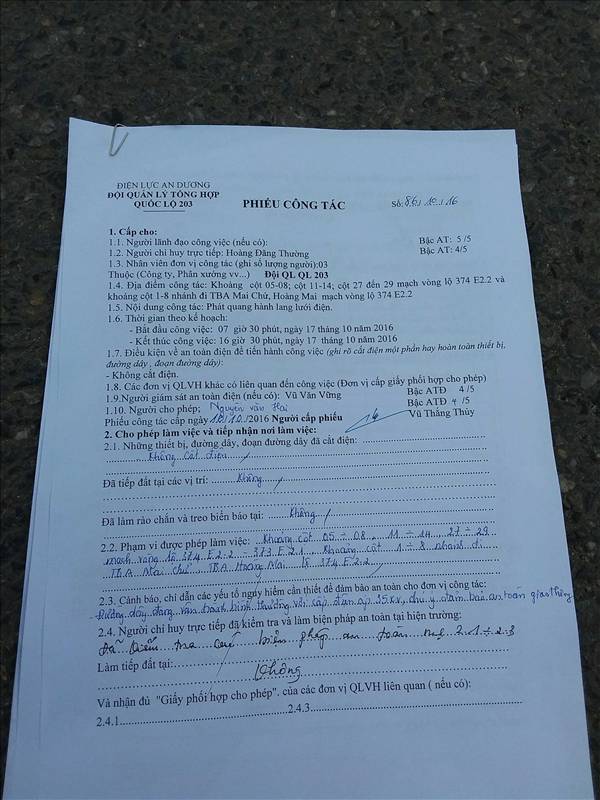 ĐIỆN LỰC AN DƯƠNG
ĐỘI QUẢN LÝ TỔNG HỢP
QUỐC LỘ 203
PHIẾU CÔNG TÁC
Số: 86/10/16
1. Cấp cho:
1.1. Người lãnh đạo công việc (nếu có): Bậc AT: 5/5
1.2. Người chỉ huy trực tiếp: Hoàng Đăng Thường Bậc AT: 4/5
1.3. Nhân viên đơn vị công tác (ghi số lượng người):03
Thuộc (Công ty, Phân xưởng vv...) Đội QL QL 203
1.4. Địa điểm công tác: Khoảng cột 05-08; cột 11-14; cột 27 đến 29 mạch vòng lộ 374 E2.2 và
khoảng cột 1-8 nhánh đi TBA Mai Chứ, Hoàng Mai mạch vòng lộ 374 E2.2
1.5. Nội dung công tác: Phát quang hành lang lưới điện.
1.6. Thời gian theo kế hoạch:
- Bắt đầu công việc: 07 giờ 30 phút, ngày 17 tháng 10 năm 2016
- Kết thúc công việc: 16 giờ 30 phút, ngày 17 tháng 10 năm 2016
1.7. Điều kiện về an toàn điện để tiến hành công việc (ghi rõ cắt điện một phần hay hoàn toàn thiết bị,
đường dây, đoạn đường dây):
- Không cắt điện.
1.8. Các đơn vị QLVH khác có liên quan đến công việc (Đơn vị cấp giấy phối hợp cho phép)
1.9.Người giám sát an toàn điện (nếu có): Vũ Văn Vững Bậc ATĐ 4/5
1.10. Người cho phép: Nguyễn Văn Hai Bậc ATĐ 4/5
Phiếu công tác cấp ngày /10/2016 Người cấp phiếu Vũ Thắng Thủy
2. Cho phép làm việc và tiếp nhận nơi làm việc:
2.1. Những thiết bị, đường dây, đoạn đường dây đã cắt điện:
Không cắt điện
Đã tiếp đất tại các vị trí: Không
Đã làm rào chắn và treo biển báo tại: Không
2.2. Phạm vi được phép làm việc: Khoảng cột 05÷08, 11÷14, 27÷29
mạch vòng lộ 374 E2.2 - 373 E2.1, Khoảng cột 1÷8 nhánh đi
TBA Mai Chứ, TBA Hoàng Mai lộ 374 E2.2
2.3. Cảnh báo, chỉ dẫn các yếu tố nguy hiểm cần thiết để đảm bảo an toàn cho đơn vị công tác:
Đường dây đang vận hành bình thường với cấp điện áp 35kv, chú ý đảm bảo an toàn giao thông
2.4. Người chỉ huy trực tiếp đã kiểm tra và làm biện pháp an toàn tại hiện trường:
Đã kiểm tra biện pháp an toàn mục 2.1÷2.3
Làm tiếp đất tại:
Không
Và nhận đủ "Giấy phối hợp cho phép". của các đơn vị QLVH liên quan ( nếu có):
2.4.1 2.4.3